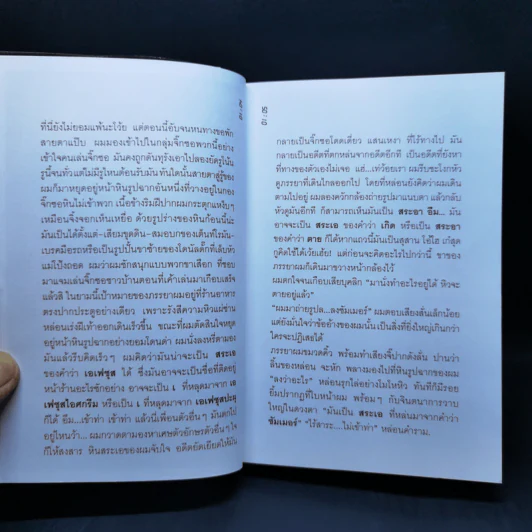 ที่นี่ยังไม่ยอมแพ้นะโว้ย แต่ตอนนี้อับจนหนทางขอพัก
สายตาแป๊บ ผมมองเข้าไปในกลุ่มจิ๊กซอพวกนี้อย่าง
เข้าใจคนเล่นจิ๊กซอ มันคงถูกดันทุรังเอาไปลองยัดรูโน้น
รูนี้จนทั่วแต่ไม่มีรูไหนต้อนรับมัน ทันใดนั้นสายตาสู่รู้ของ
ผมก็มาหยุดอยู่หน้าหินรูปฉากอันหนึ่งที่วางอยู่ในกอง
จิ๊กซอหินไม่เข้าพวก เนื้อข้างริมฝีปากผมกระตุกแห้งๆ
เหมือนจิ้งจอกเห็นเหยื่อ ด้วยรูปร่างของหินก้อนนี้น่ะ
มันเป็นได้ตั้งแต่
แม่โป้งถอด ผมว่าผมชักสนุกแบบพวกขาเลือก ที่ชอบ
มาแจมเล่นจิ๊กซอชาวบ้านตอนที่เค้าเล่นมาเกือบเสร็จ
แล้วสิ ในยามนี้เป้าหมายของภรรยาผมอยู่ที่ร้านอาหาร
ตรงปากประตูอย่างเดียว เพราะรังสีความหิวแผ่ซ่าน
หล่อนเร่งฝีเท้าออกเดินเร็วขึ้น ขณะที่ผมตัดสินใจหยุด
อยู่หน้าหินรูปฉากอย่างยอมโดนด่า ผมนั่งลงหรี่ตามอง
มันแล้วรีบคิดเร็วๆ ผมคิดว่ามันน่าจะเป็น สระเอ
ของคำว่า เอเฟซุส ได้ ซึ่งมันอาจจะเป็น เ ที่ติดอยู่
หน้าร้านอะไรซักอย่าง อาจจะเป็น เ ที่หลุดมาจาก เอ
เฟซุสไอศกรีม หรือเป็น เ ที่หลุดมาจาก เอเฟซุสประตู
ก็ได้ อืม...เข้าท่า เข้าท่า แล้วนี่เพื่อนตัวอื่นๆ มันตกไป
อยู่ไหนว้า... ผมกวาดตามองหาเศษตัวอักษรตัวอื่นๆ ใจ
ก็ให้สงสาร หินสระเอของผมจับใจ อดีตยัดเยียดให้มัน
กลายเป็นจิ๊กซอโดดเดี่ยว แสนเหงา ที่ไร้ทางไป มัน
กลายเป็นอดีตที่ตกหล่นจากอดีตอีกที เป็นอดีตที่ยังหา
ที่ทางของตัวเองไม่เจอ แย่...เทวัอยเรา ผมรีบชะโงกหัว
ดูภรรยาที่เดินไกลออกไป โดยที่หล่อนยังคิดว่าผมเดิน
ตามไปอยู่ ผมลองควักกล้องถ่ายรูปมาแนบตา แล้วกลับ
หัวดูมันอีกที ก็สามารถเห็นมันเป็น สระอา อืม... มัน
อาจจะเป็น สระเอ ของคำว่า เกิด หรือเป็น สระอา
ของคำว่า ตาย ก็ได้หากแถวนี้มันเป็นสุสาน โอ้โฮ เก๋สุด
กูคิดได้ไงวะ แต่ก่อนจะคิดอะไรไปกว่านี้ ขาของ
ภรรยาผมก็เดินมาขวางหน้ากล้องไว้
ผมตกใจจนเกือบเสียบุคลิก “มานั่งทำอะไรอยู่ได้ หิวจะ
ตายอยู่แล้ว”
“ผมมาถ่ายรูป...ลงซัมเมอร์” ผมตอบเสียงสั่นเล็กน้อย
แต่ยังมั่นใจว่าข้ออ้างของผมนั้น เป็นสิ่งที่ยิ่งใหญ่เกินกว่า
ใครจะปฏิเสธได้
ภรรยาผมขมวดคิ้ว พร้อมทำเสียงจิ๊ปากดังลั่น ปานว่า
ลิ้นของหล่อน จะหัก พลางมองไปที่หินรูปฉากของผม
“ลงว่าอะไร” หล่อนรุกไล่อย่างไม่ไหหิว ทันทีก็มีรอย
ยิ้มปรากฏที่ใบหน้าผม พร้อมๆ กับจินตนาการวาบ
ใหญ่ในดวงตา “มันเป็น สระเอ ที่หล่นมาจากคำว่า
ซัมเมอร์” “ไร้สาระ....ไม่เข้าท่า” หล่อนคำราม.